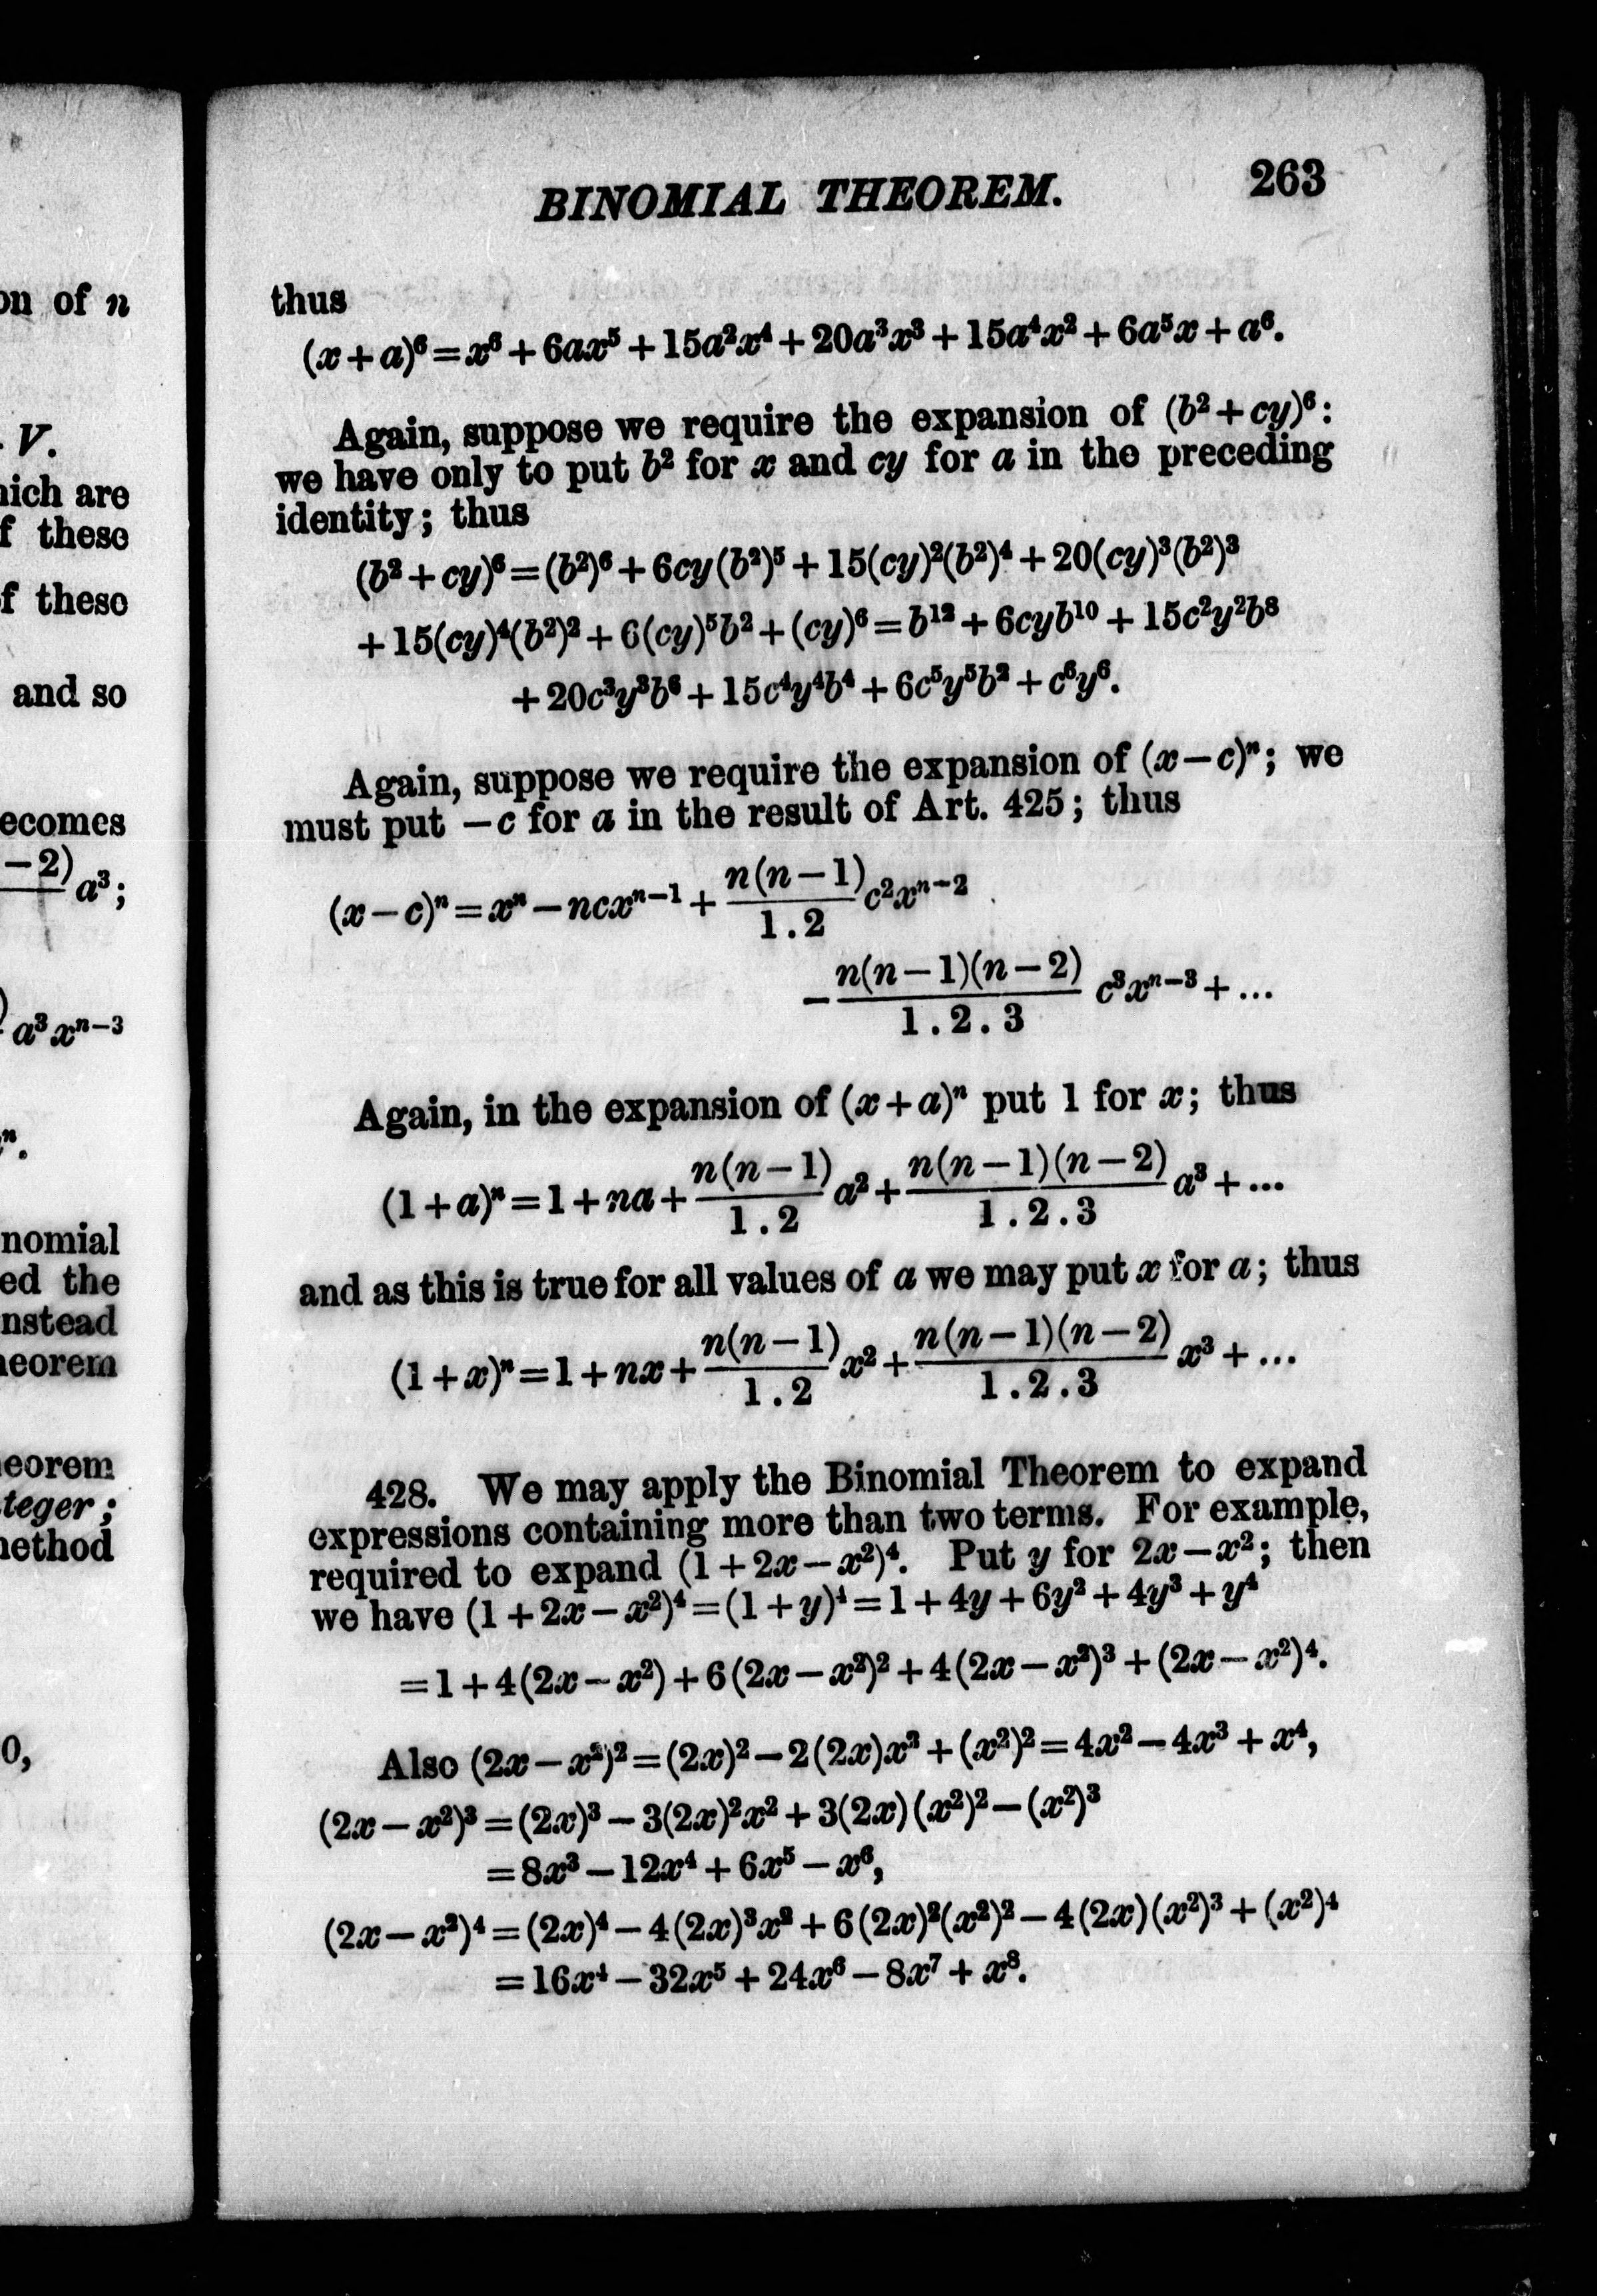 on of n
V.
hich are
f these
f these
and so
ecomes
−2) a³;
a³xⁿ⁻³
ⁿ.
nomial
ed the
nstead
heorem
eorem
teger;
method
0,
BINOMIAL THEOREM. 263
thus
(x+a)⁶=x⁶+6ax⁵+15a²x⁴+20a³x³+15a⁴x²+6a⁵x+a⁶.
Again, suppose we require the expansion of (b²+cy)⁶:
we have only to put b² for x and cy for a in the preceding
identity; thus
(b²+cy)⁶=(b²)⁶+6cy(b²)⁵+15(cy)²(b²)⁴+20(cy)³(b²)³
+15(cy)⁴(b²)²+6(cy)⁵b²+(cy)⁶=b¹²+6cyb¹⁰+15c²y²b⁸
+20c³y³b⁶+15c⁴y⁴b⁴+6c⁵y⁵b²+c⁶y⁶.
Again, suppose we require the expansion of (x−c)ⁿ; we
must put −c for a in the result of Art. 425; thus
(x−c)ⁿ=xⁿ−ncxⁿ⁻¹+n(n−1)/1.2 c²xⁿ⁻²
−n(n−1)(n−2)/1.2.3 c³xⁿ⁻³+...
Again, in the expansion of (x+a)ⁿ put 1 for x; thus
(1+a)ⁿ=1+na+n(n−1)/1.2 a²+n(n−1)(n−2)/1.2.3 a³+...
and as this is true for all values of a we may put x for a; thus
(1+x)ⁿ=1+nx+n(n−1)/1.2 x²+n(n−1)(n−2)/1.2.3 x³+...
428. We may apply the Binomial Theorem to expand
expressions containing more than two terms. For example,
required to expand (1+2x−x²)⁴. Put y for 2x−x²; then
we have (1+2x−x²)⁴=(1+y)⁴=1+4y+6y²+4y³+y⁴
=1+4(2x−x²)+6(2x−x²)²+4(2x−x²)³+(2x−x²)⁴.
Also (2x−x²)²=(2x)²−2(2x)x²+(x²)²=4x²−4x³+x⁴,
(2x−x²)³=(2x)³−3(2x)²x²+3(2x)(x²)²−(x²)³
=8x³−12x⁴+6x⁵−x⁶,
(2x−x²)⁴=(2x)⁴−4(2x)³x²+6(2x)²(x²)²−4(2x)(x²)³+(x²)⁴
=16x⁴−32x⁵+24x⁶−8x⁷+x⁸.